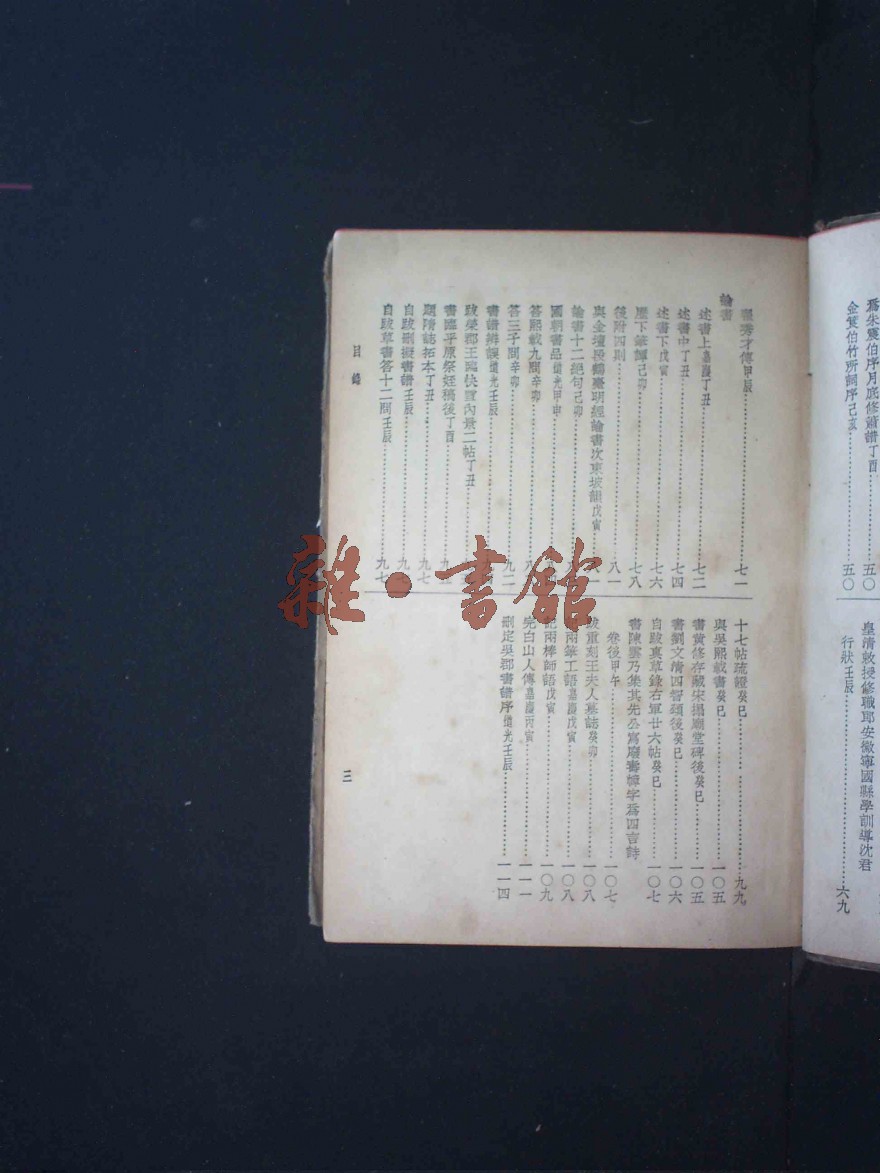 爲朱震伯序月底修簫譜丁酉⋯⋯五〇
金筤伯竹所詞序己亥⋯⋯五〇
皇清敕授修職郎安徽寧國縣學訓導沈君
行狀壬辰⋯⋯六九
翟秀才傳甲辰⋯⋯七一
論書
述書上嘉慶丁丑⋯⋯七二
述書中丁丑⋯⋯七四
述書下戊寅⋯⋯七六
歷下筆譚己卯⋯⋯七八
後附四則⋯⋯八一
與金壇段鶴臺明經論書次東坡韻戊寅
論書十二絕句己卯⋯⋯
國朝書品道光甲申⋯⋯
答熙載九問辛卯⋯⋯
答三子問辛卯⋯⋯九二
書譜辨誤道光壬辰⋯⋯
跋榮郡王臨快雪內景二帖丁丑⋯⋯
書臨平原祭姪稿後丁酉⋯⋯
題隋誌拓本丁丑⋯⋯九七
自跋刪擬書譜壬辰⋯⋯
自跋草書答十二問壬辰⋯⋯九七
十七帖疏證癸巳⋯⋯九九
與吳熙載書癸巳⋯⋯一〇五
書黃修存藏宋搨廟堂碑後癸巳⋯⋯一〇五
書劉文清四智頌後癸巳⋯⋯一〇六
自跋眞草錄右軍廿六帖癸巳⋯⋯一〇七
書陳雲乃集其先公寫廢書譚字爲四言詩
卷後甲午⋯⋯一〇七
跋重刻王夫人墓誌癸卯⋯⋯一〇八
兩筆工語嘉慶戊寅⋯⋯一〇八
記兩棒師語戊寅⋯⋯一〇九
完白山人傳嘉慶丙寅⋯⋯一一一
刪定吳郡書譜序道光壬辰⋯⋯一一四
目錄
三
雜·書館